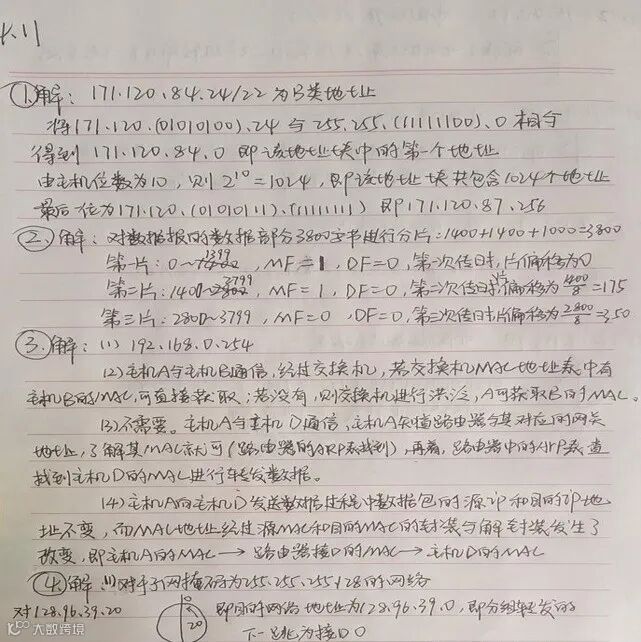 ①解：171.120.84.24/22 为B类地址
将171.120.(01010100).24 与 255.255.(11111100).0 相与
得到 171.120.84.0 即该地址块中的第一个地址
由主机位数为10，则 2¹⁰=1024，即该地址块共包含1024个地址
最后一位为171.120.(01010111).(11111111) 即171.120.87.256
②解：对数据报的数据部分3800字节进行分片：1400+1400+1000=3800
第一片：0~1399，MF=1，DF=0，第一次传时，片偏移为0
第二片：1400~2799，MF=1，DF=0，第二次传时，片偏移为1400/8=175
第三片：2800~3799，MF=0，DF=0，第三次传时片偏移为2800/8=350
③解：(1) 192.168.0.254
(2)主机A与主机B通信，经过交换机，若交换机MAC地址表中有
主机B的MAC，可直接获取；若没有，则交换机进行洪泛，A可获取B的MAC。
(3)不需要。主机A与主机D通信，主机A只懂路由器与其对应的网关
地址，了解其MAC就可(路由器的ARP表找到)，再者，路由器中的ARP表查
找到主机D的MAC进行转发数据。
(4)主机A向主机D发送数据过程中数据包的源ip和目的ip地
址不变，而MAC地址经过源MAC和目的MAC的封装与解封装发生了
改变，即主机A的MAC→路由器接口的MAC→主机D的MAC
④解 (1)对子网掩码为255.255.255.128的网络
对128.96.39.20
0
20
即目的网络地址为128.96.39.0，即分组转发的
下一跳为接口0
大数跨境